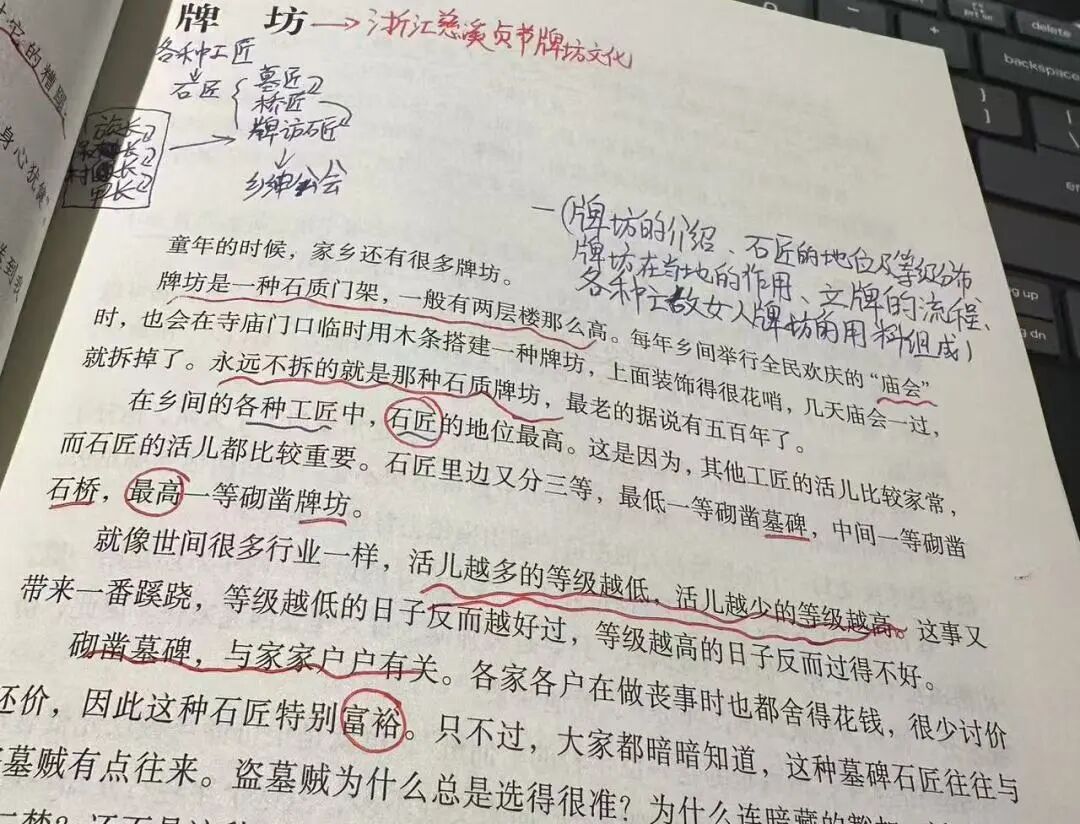 牌 坊 → 浙江慈溪贞节牌坊文化
各种工匠
石匠
墓匠
桥匠
牌访石匠
乡绅公会
族长
村长
一(牌坊的介绍、石匠的地位及等级分布
牌坊在当地的作用、立牌的流程、
各种女人牌坊的用料组成)
童年的时候，家乡还有很多牌坊。
牌坊是一种石质门架，一般有两层楼那么高。每年乡间举行全民欢庆的“庙会”
时，也会在寺庙门口临时用木条搭建一种牌坊，上面装饰得很花哨，几天庙会一过，
就拆掉了。永远不拆的就是那种石质牌坊，最老的据说有五百年了。
在乡间的各种工匠中，石匠的地位最高。这是因为，其他工匠的活儿比较家常，
而石匠的活儿都比较重要。石匠里边又分三等，最低一等砌凿墓碑，中间一等砌凿
石桥，最高一等砌凿牌坊。
就像世间很多行业一样，活儿越多的等级越低，活儿越少的等级越高。这事又
带来一番蹊跷，等级越低的日子反而越好过，等级越高的日子反而过得不好。
砌凿墓碑，与家家户户有关。各家各户在做丧事时也都舍得花钱，很少讨价
还价，因此这种石匠特别富裕。只不过，大家都暗暗知道，这种墓碑石匠往往与
墓贼有点往来。盗墓贼为什么总是选得很准？为什么连暗藏的
delete
backspace